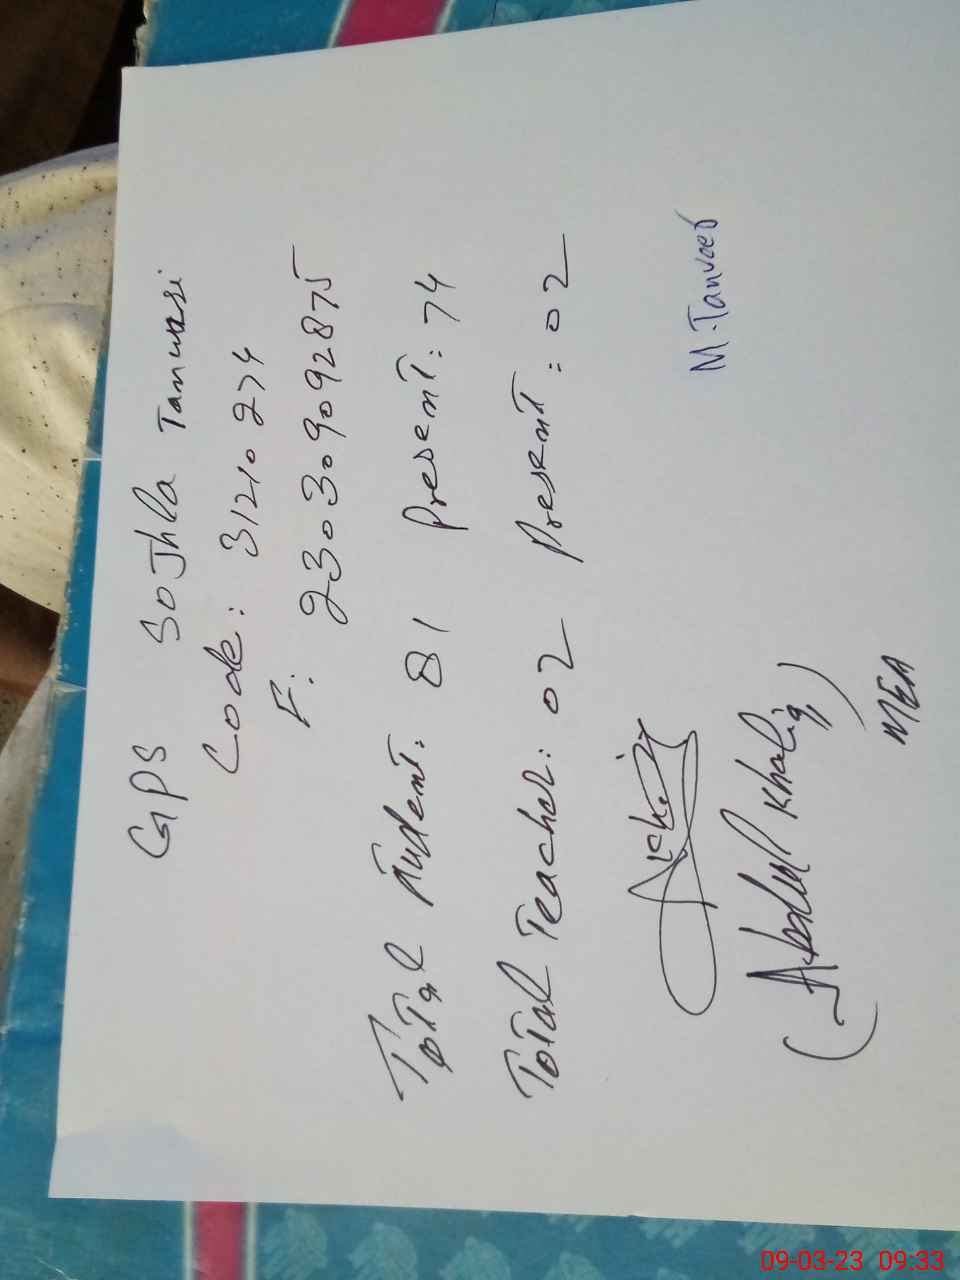 GPS Sojhla Tanwari
Code: 31210274
F: 2303909092875
Total Student: 81 Present: 74
Total Teacher: 02 Present: 02
M.Tanveer
(Abdul Khaliq)
MEA
09-03-23 09:33